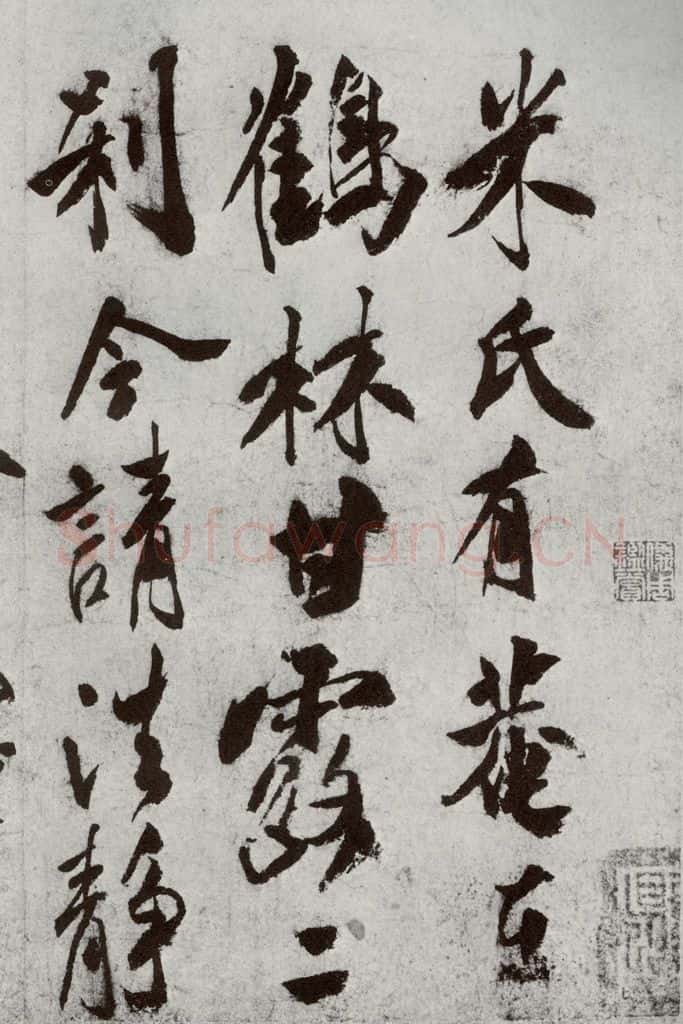 米氏有菴在
鶴林甘露二
刹今請法靜
Shufawang.CN